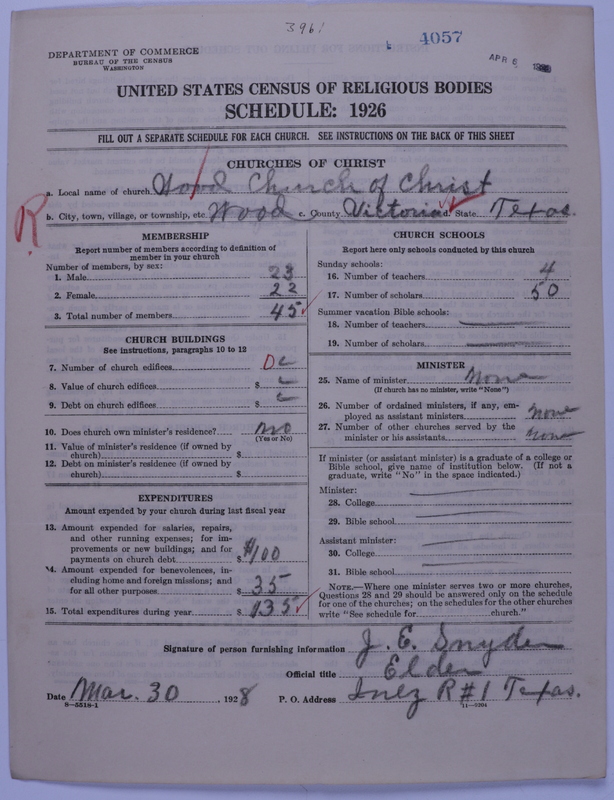 3961
4057
APR 6
DEPARTMENT OF COMMERCE
BUREAU OF THE CENSUS
WASHINGTON
UNITED STATES CENSUS OF RELIGIOUS BODIES
SCHEDULE: 1926
FILL OUT A SEPARATE SCHEDULE FOR EACH CHURCH. SEE INSTRUCTIONS ON THE BACK OF THIS SHEET
CHURCHES OF CHRIST
a. Local name of church Wood Church of Christ
R
b. City, town, village, or township, etc. Wood c. County Victoria d. State Texas.
MEMBERSHIP
Report number of members according to definition of
member in your church
Number of members, by sex:
1. Male 23
2. Female 22
3. Total number of members 45
CHURCH BUILDINGS
See instructions, paragraphs 10 to 12
7. Number of church edifices
8. Value of church edifices $
9. Debt on church edifices $
10. Does church own minister's residence? No
(Yes or No)
11. Value of minister's residence (if owned by
church) $
12. Debt on minister's residence (if owned by
church) $
EXPENDITURES
Amount expended by your church during last fiscal year
13. Amount expended for salaries, repairs,
and other running expenses; for im-
provements or new buildings; and for
payments on church debt $ $100
14. Amount expended for benevolences, in-
cluding home and foreign missions; and
for all other purposes $ 35
15. Total expenditures during year $ 135
CHURCH SCHOOLS
Report here only schools conducted by this church
Sunday schools:
16. Number of teachers 4
17. Number of scholars 50
Summer vacation Bible schools:
18. Number of teachers
19. Number of scholars
MINISTER
25. Name of minister None
(If church has no minister, write "None")
26. Number of ordained ministers, if any, em-
ployed as assistant ministers none
27. Number of other churches served by the
minister or his assistants none
If minister (or assistant minister) is a graduate of a college or
Bible school, give name of institution below. (If not a
graduate, write "No" in the space indicated.)
Minister:
28. College
29. Bible school
Assistant minister:
30. College
31. Bible school
NOTE.—Where one minister serves two or more churches,
Questions 28 and 29 should be answered only on the schedule
for one of the churches; on the schedules for the other churches
write "See schedule for church."
Signature of person furnishing information J. E. Snyder
Official title Elder
Date Mar. 30, 1928 P. O. Address Inez R#1 Texas.
8-5518-1 11-9204